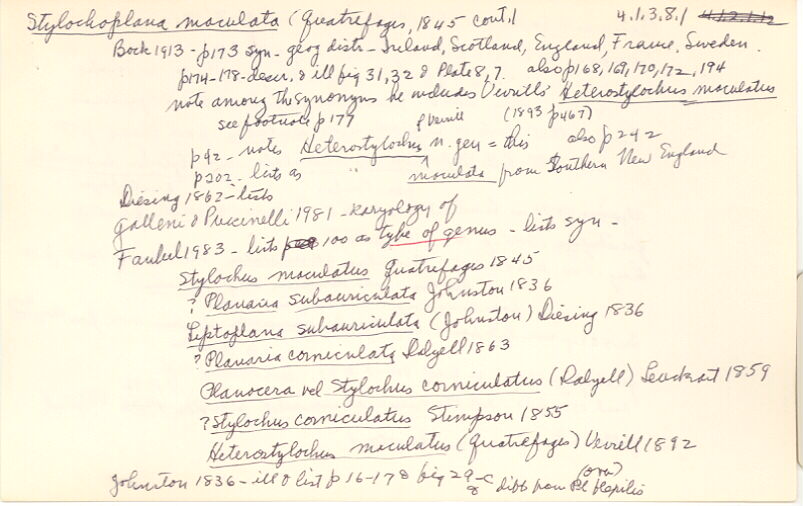 Stylochoplana maculata (Quatrefages, 1845 cont.) 4.1.3.8.1 4.1.2.1.12
Bock 1913 - p173 syn - geog distr - Ireland, Scotland, England, France, Sweden.
p174-178 - descr. & ill fig 31, 32 & Plate 8, 7. also p168, 169, 170, 172, 194
note among the synonyms he includes Verrill's Heterostylochus maculatus
see footnote p177 (1893 p467)
p42 - notes Heterostylochus Verrill n. gen = this also p242
p202 - lists as " maculata from Southern New England
Diesing 1862 - lists
Galleni & Puccinelli 1981 - karyology of
Faubel 1983 - lists p 100 as type of genus - lists syn -
Stylochus maculatus Quatrefages 1845
? Planaria subauriculata Johnston 1836
Leptoplana subauriculata (Johnston) Diesing 1836
? Planaria corniculata Dalyell 1863
Planocera vel Stylochus corniculatus (Dalyell) Leuckart 1859
? Stylochus corniculatus Stimpson 1855
Heterostylochus maculatus (Quatrefages) Verrill 1892
Johnston 1836 - ill & list p 16-17 & fig 2a-c & diff from Pl flexilis